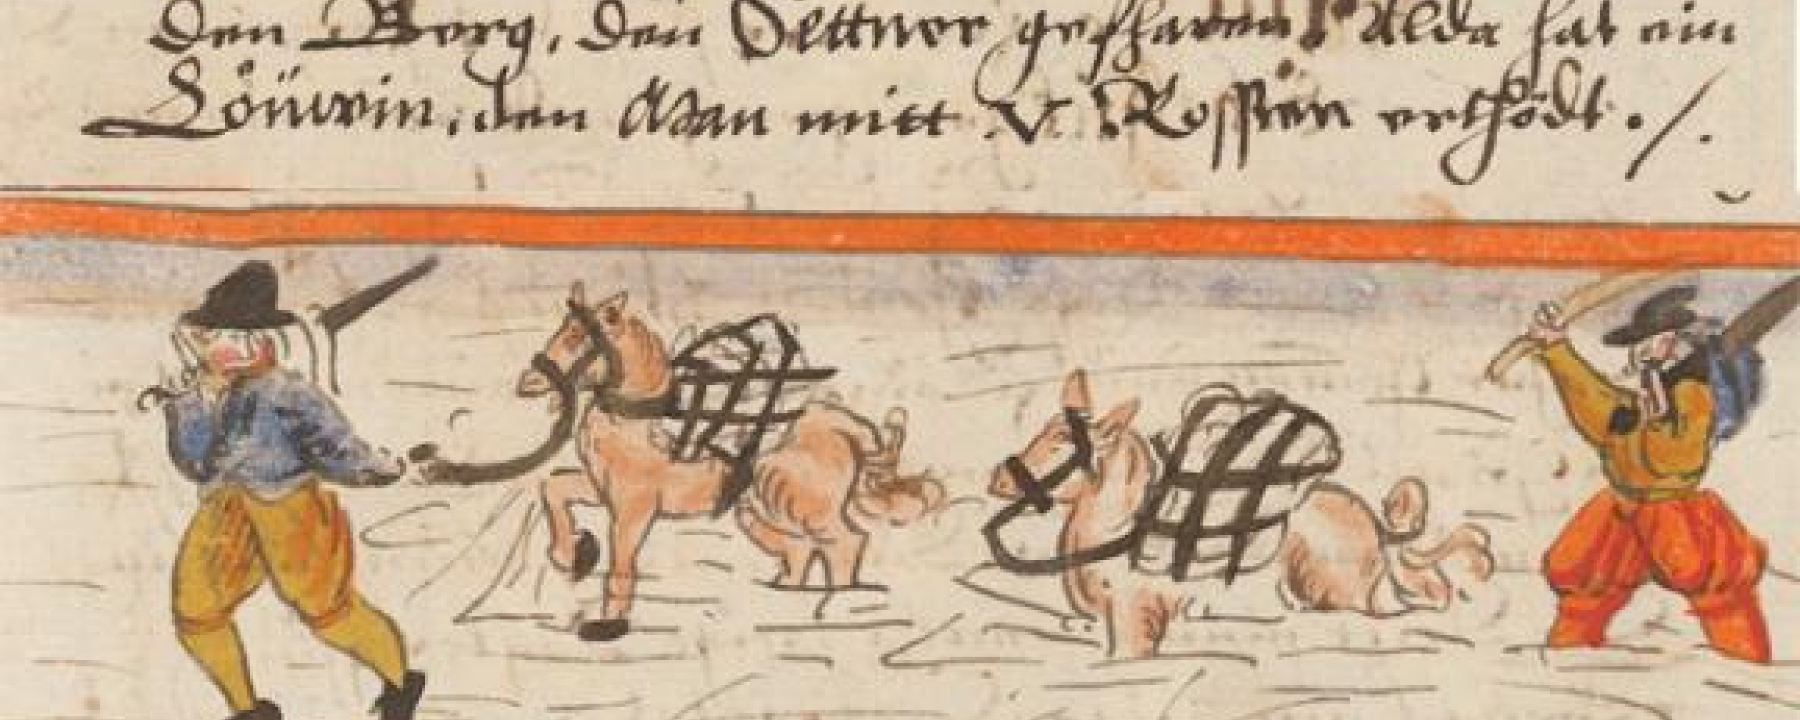 den Berg, den Settner gefharen, Alda hat ein
Löüwin, den Man mitt V Rossen erthödt ./.